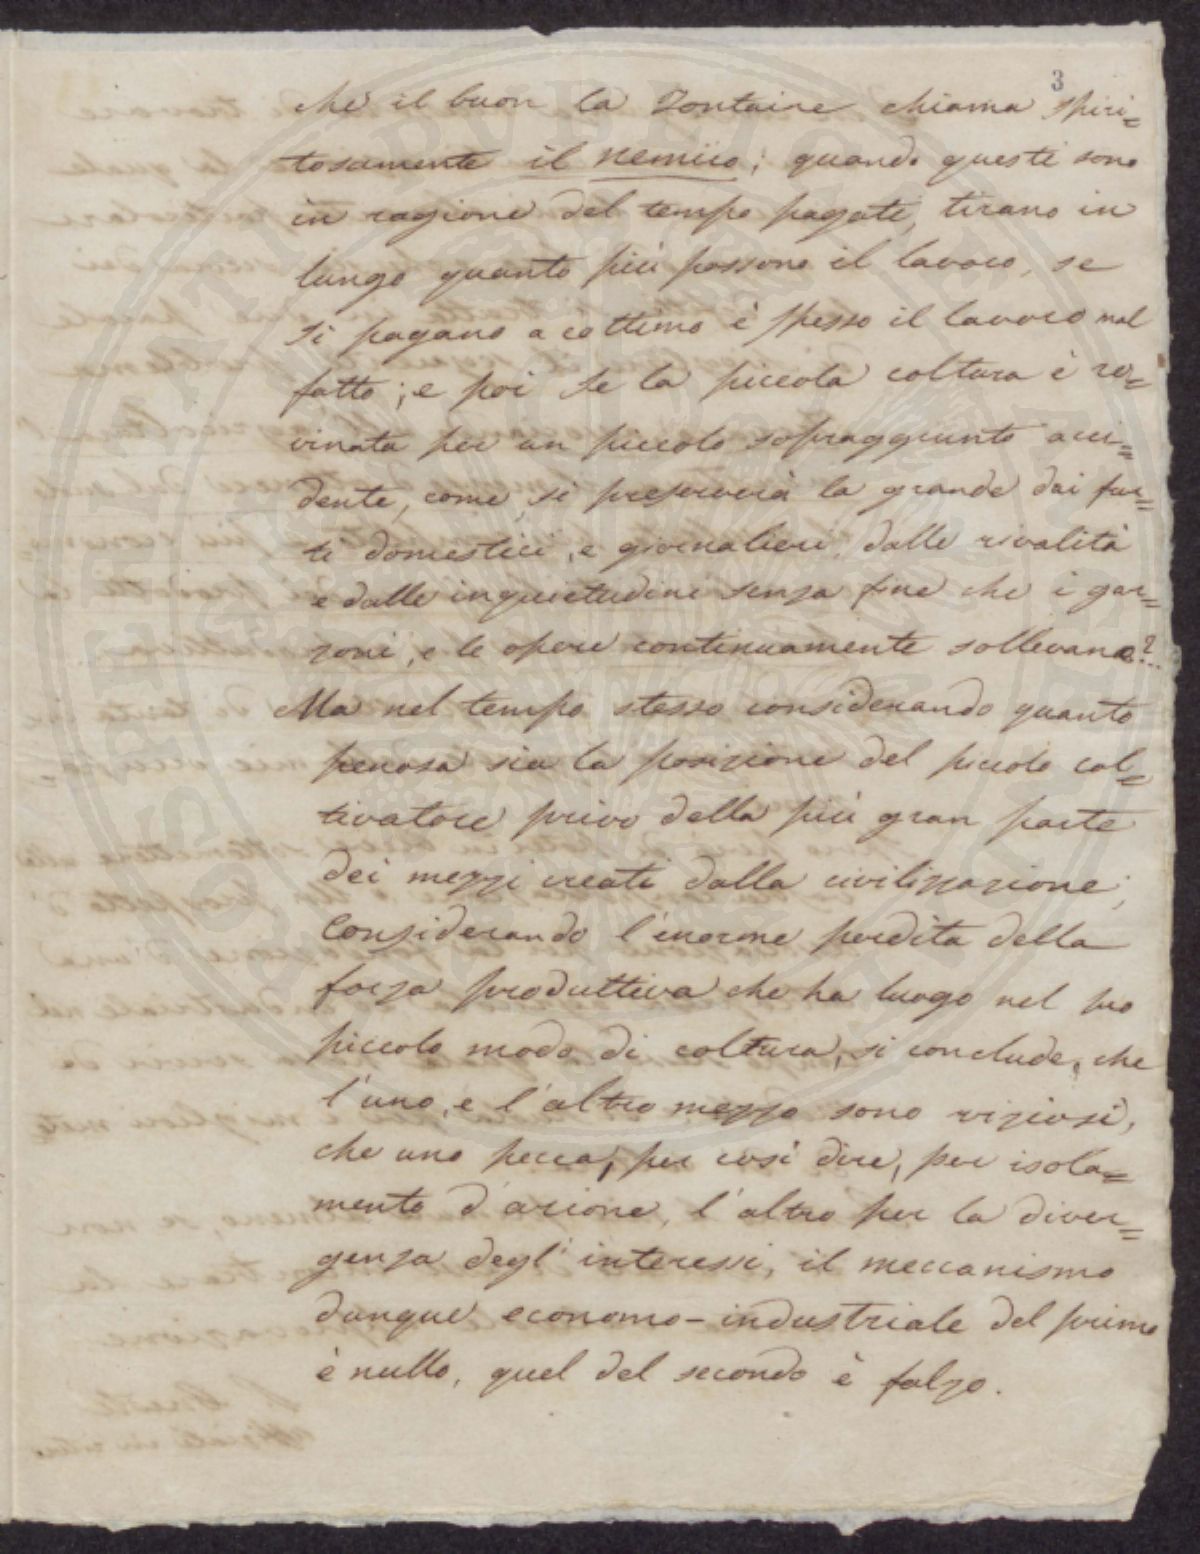 3
che il buon la Fontaine chiama spiri=
tosamente il nemico; quando questi sono
in ragione del tempo pagati, tirano in
lungo quanto più possono il lavoro, se
si pagano a cottimo è spesso il lavoro mal
fatto; e poi se la piccola coltura è ro=
vinata per un piccolo sopraggiunto acci=
dente, come si preserverà la grande dai fur=
ti domestici, e giornalieri, dalle rivalità
e dalle inquietudini senza fine che i gar=
zoni, e le opere continuamente sollevano?...
Ma nel tempo stesso considerando quanto
penosa sia la posizione del piccolo col=
tivatore privo della più gran parte
dei mezzi creati dalla civilizzazione;
Considerando l'enorme perdita della
forza produttiva che ha luogo nel suo
piccolo modo di coltura, si conclude, che
l'uno, e l'altro mezzo sono viziosi,
che uno pecca, per così dire, per isola=
mento d'azione, l'altro per la diver=
genza degl'interessi, il meccanismo
dunque economo-industriale del primo
è nullo, quel del secondo è falzo.